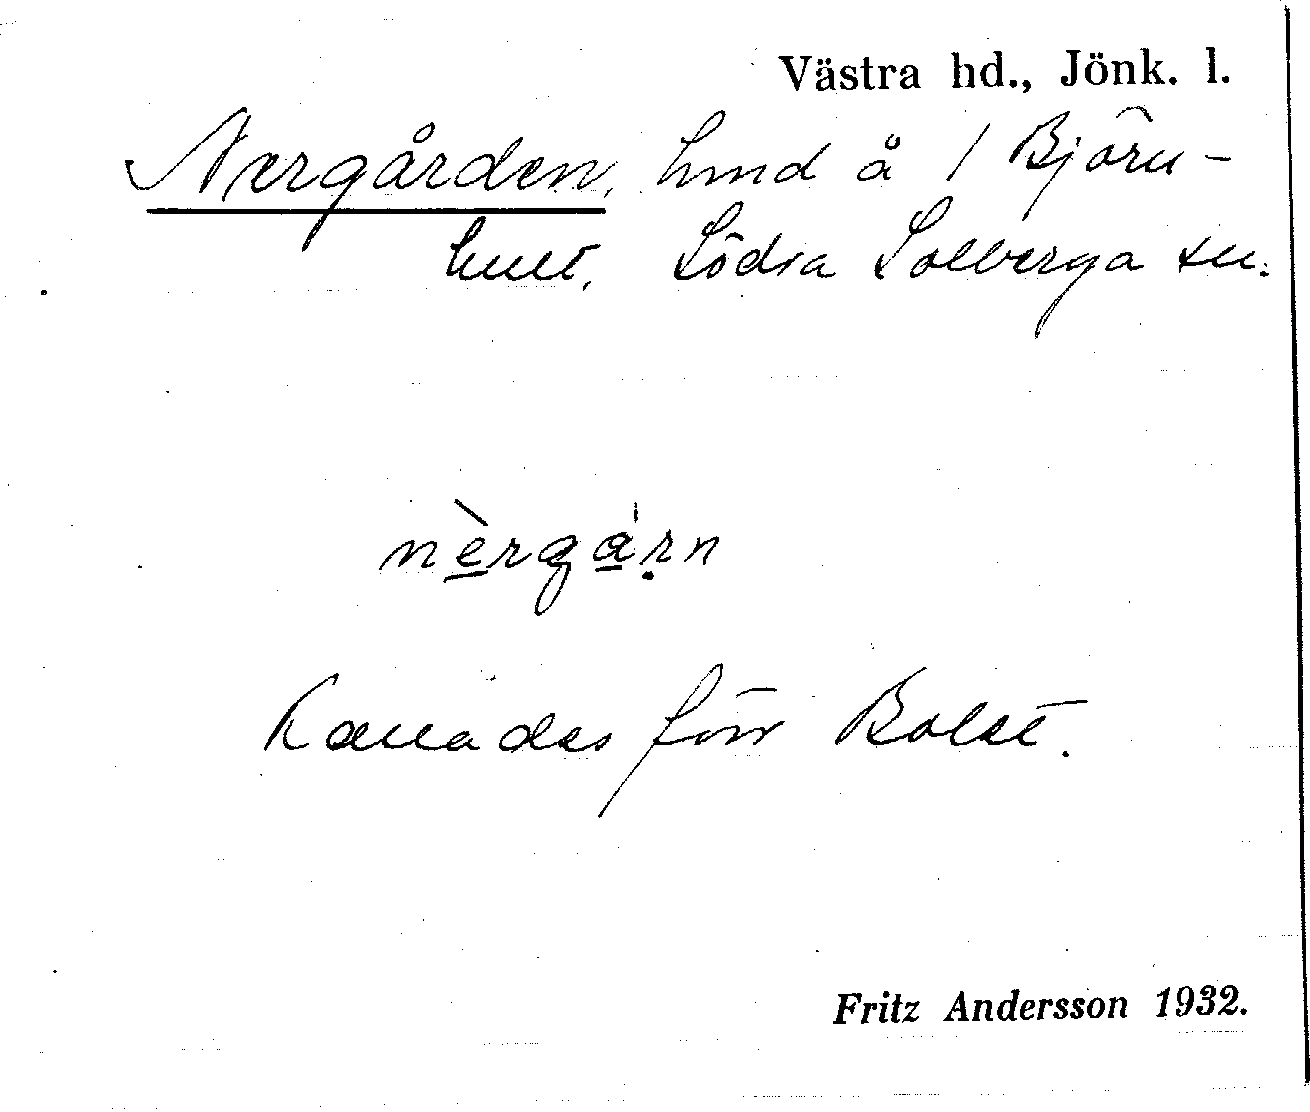 Västra hd., Jönk. l.
Nergården, hmd å 1 Björn-
hult, Södra Solberga sn.
nèrgạ̊rn
Kallades förr Bolet.
Fritz Andersson 1932.